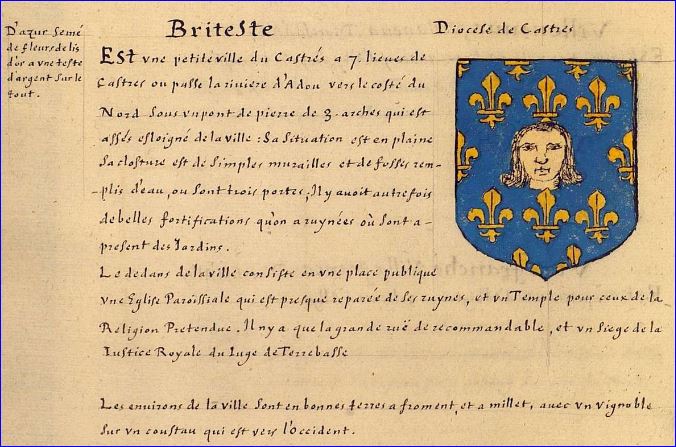 D'azur Semé
de fleurs de lis
d'or a vne teste
d'argent Sur le
tout.
Briteste
Diocese de Castres
Est vne petite ville du Castrés a 7. lieues de
Castres ou passe la riviere d'Adou vers le costé du
Nord Sous vn pont de pierre de 3. arches qui est
assés esloigné de la ville : Sa Situation est en plaine
Sa closture est de Simples murailles et de fossés rem-
-plis d'eau, ou Sont trois portes, Il y avoit autrefois
de belles fortifications qu'on a ruynées où Sont a-
present des Jardins.
Le dedans de la ville consiste en vne place publique
vne Eglise Paroissiale qui est presque reparée de Ses ruynes, et vn Temple pour ceux de la
Religion Pretendue. Il n'y a que la grande ruë de recommandable, et vn Siege de la
Iustice Royale du Iuge de Terrebasse
Les environs de la ville Sont en bonnes terres a froment, et a millet, avec vn vignoble
Sur vn coustau qui est vers l'Occident.